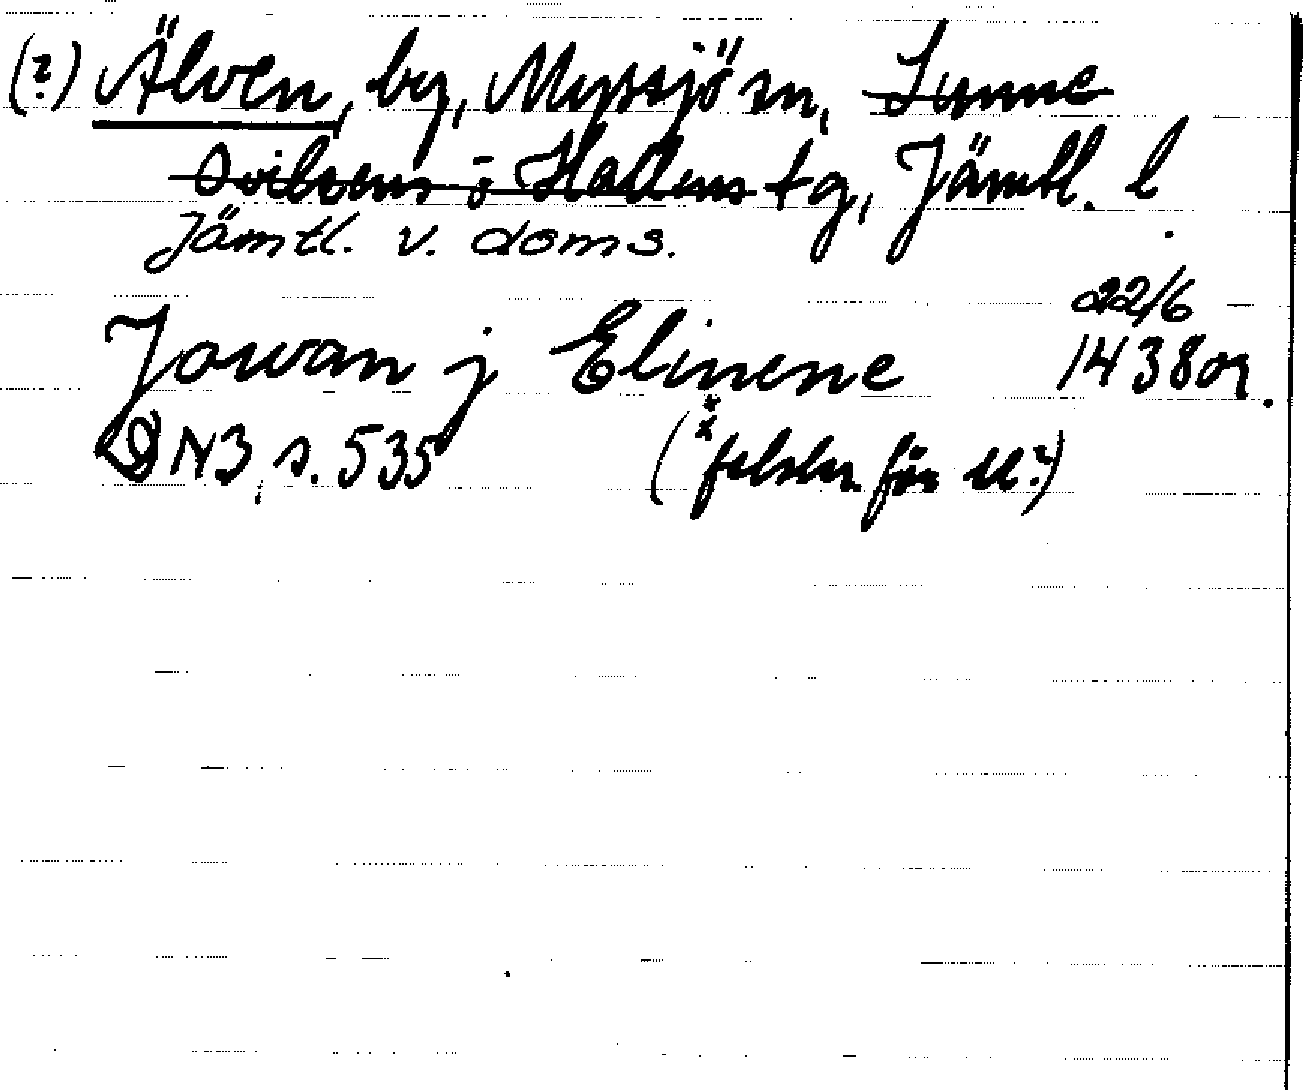 (?) Älven, by, Myssjö sn, Sunne
Ovikens o Hallens tg, Jämtl. l
Jämtl. v. doms.
22/6
Jowan j Elinene 1438 or.
DN3, s. 535 (* felskr. för ll?)